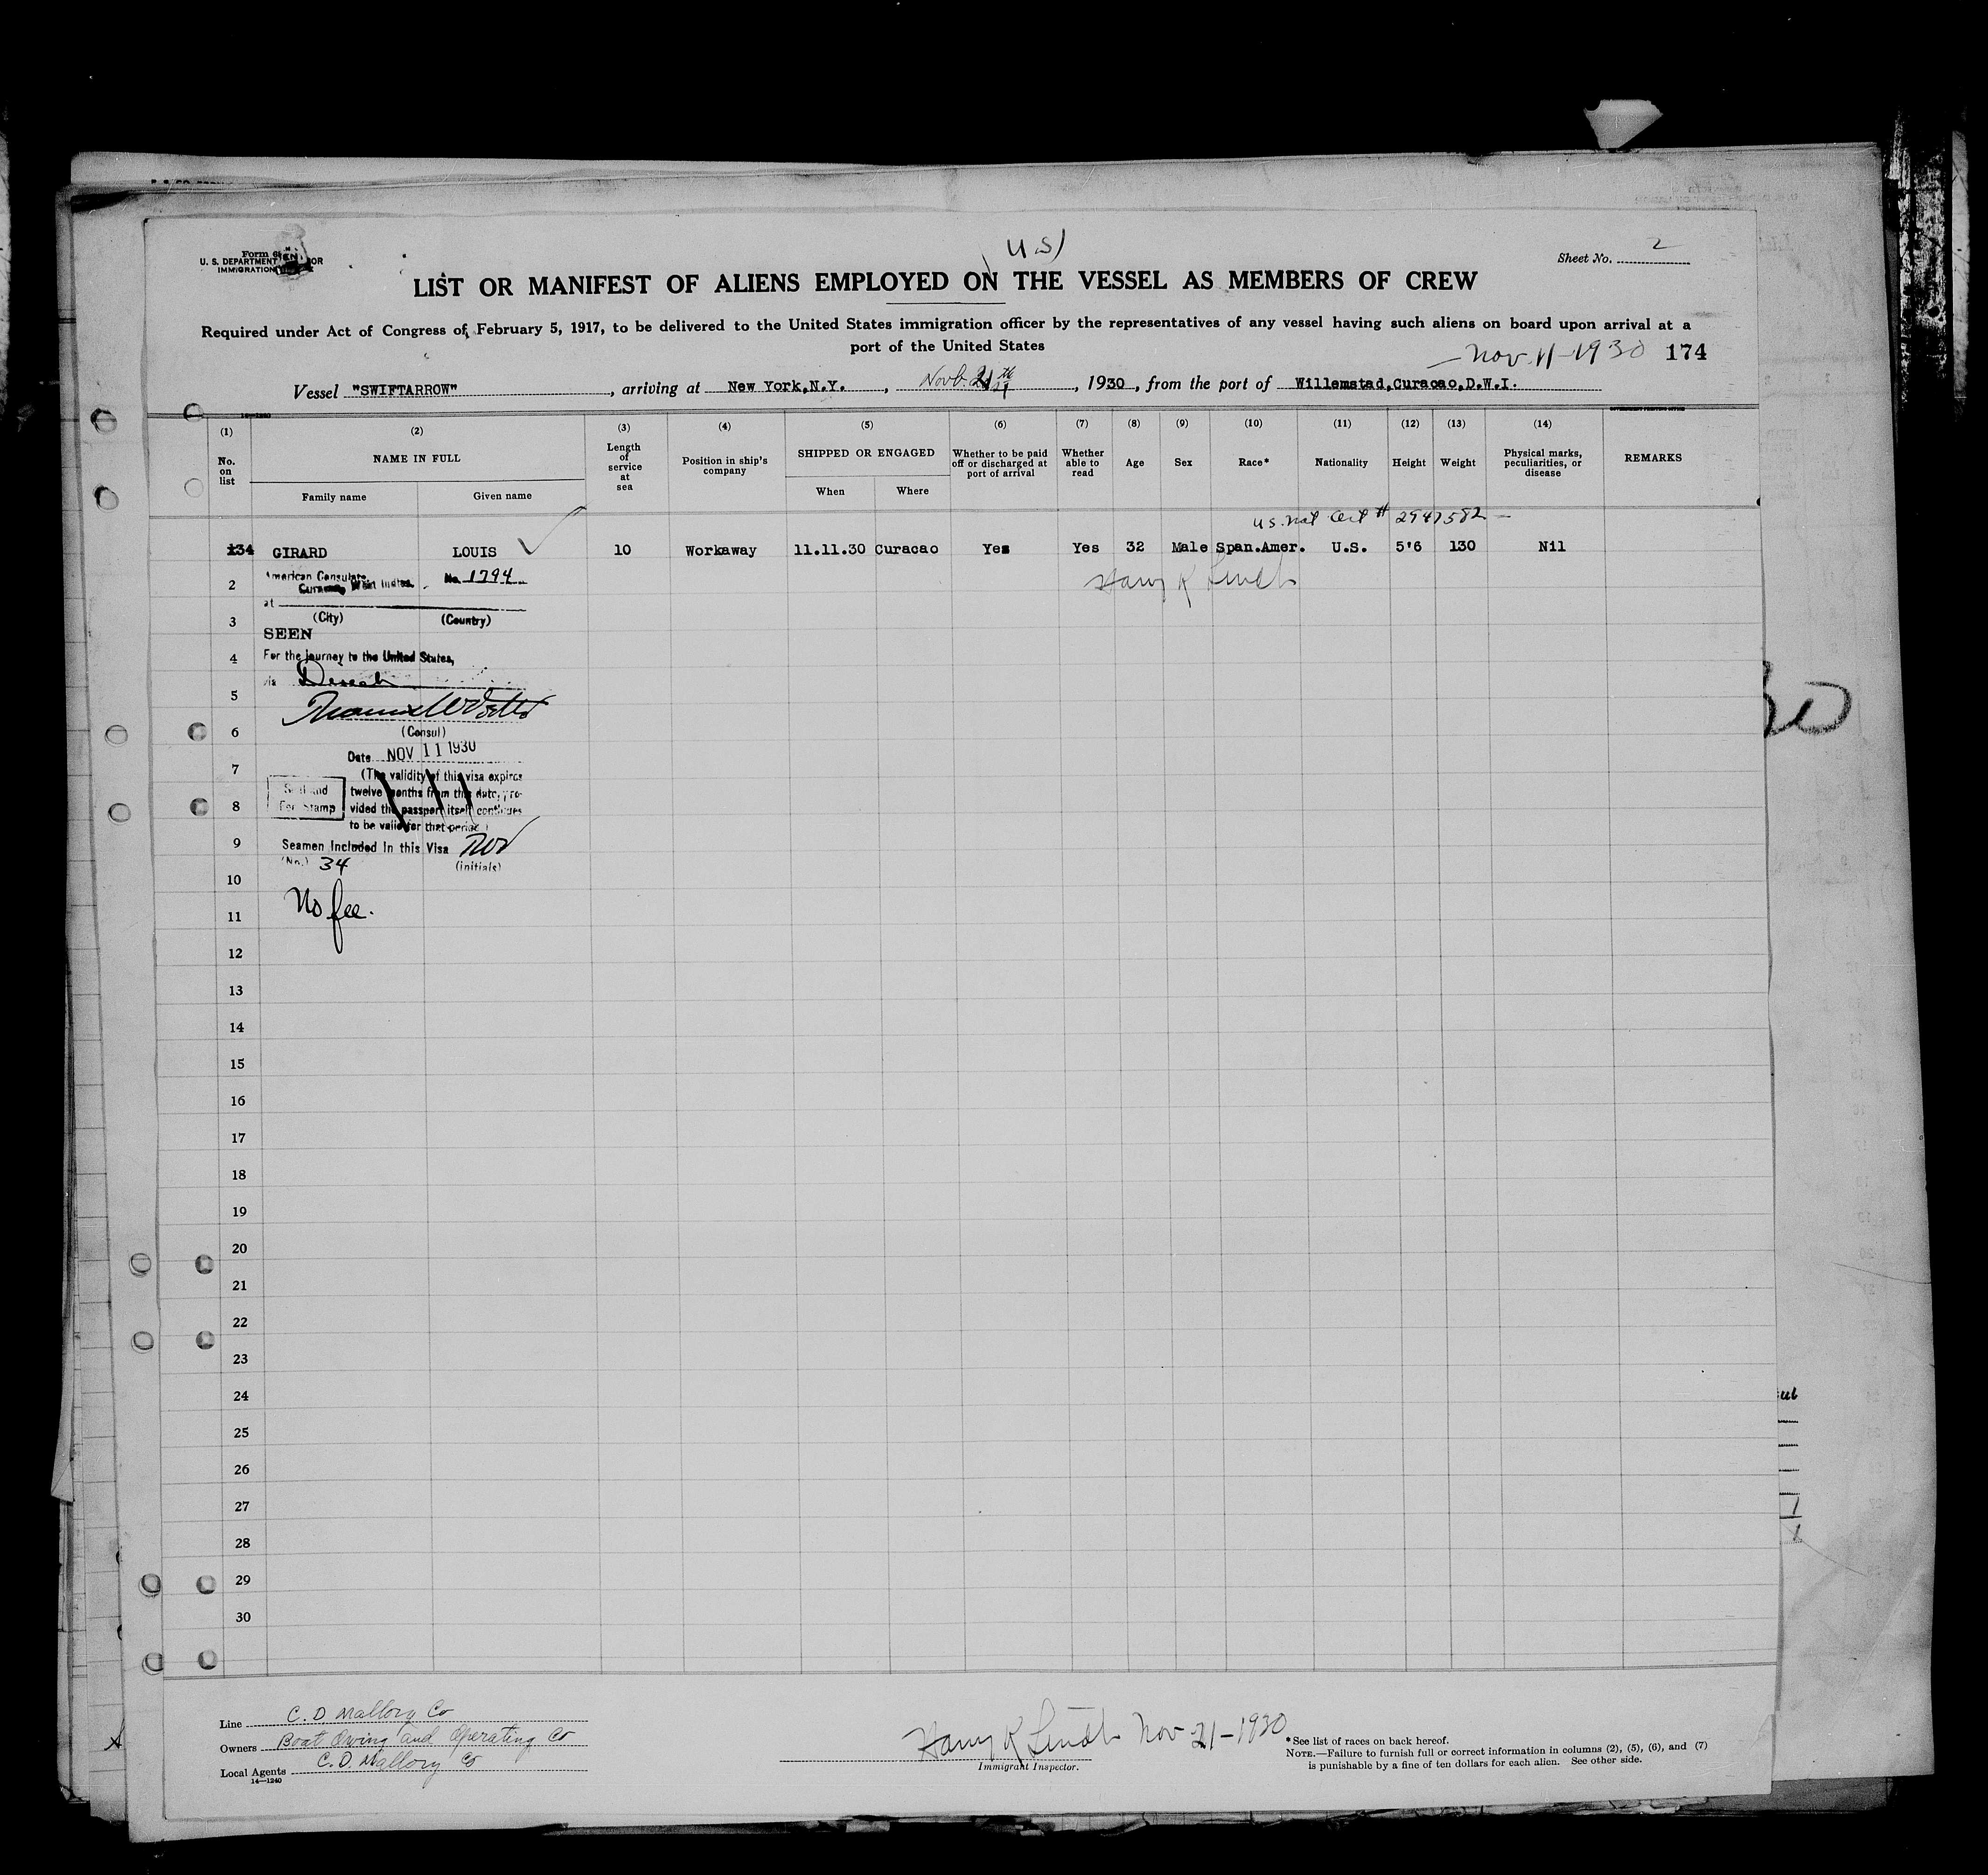 U.S.
Form 6
U. S. DEPARTMENT OR
IMMIGRATION
Sheet No. 2
LIST OR MANIFEST OF ALIENS EMPLOYED ON THE VESSEL AS MEMBERS OF CREW
Required under Act of Congress of February 5, 1917, to be delivered to the United States immigration officer by the representatives of any vessel having such aliens on board upon arrival at a
port of the United States
Nov. 11-1930 174
Vessel "SWIFTARROW", arriving at New York,N.Y., 1930, from the port of Willemstad,Curacao,D.W.I.
(1) (2) (3) (4) (5) (6) (7) (8) (9) (10) (11) (12) (13) (14)
No. on list
NAME IN FULL
Family name Given name
Length of service at sea
Position in ship's company
SHIPPED OR ENGAGED
When Where
Whether to be paid off or discharged at port of arrival
Whether able to read
Age
Sex
Race*
Nationality
Height
Weight
Physical marks, peculiarities, or disease
REMARKS
U.S. Nat Cert # 2947582 -
34 GIRARD LOUIS 10 Workaway 11.11.30 Curacao Yes Yes 32 Male Span.Amer. U.S. 5'6 130 Nil
Harry K
American Consulate, No. 1794
Curacao, West Indies.
at
(City) (Country)
SEEN
For the journey to the United States,
via Direct
(Consul)
Date NOV 11 1930
(The validity of this visa expires
twelve months from this date, pro-
vided the passport itself continues
to be valid for that period.)
Seal and
Fee Stamp
Seamen Included in this Visa
(No.) 34 (initials)
No fee.
2
3
4
5
6
7
8
9
10
11
12
13
14
15
16
17
18
19
20
21
22
23
24
25
26
27
28
29
30
Line C. D Mallory Co
Owners Boat Owing and Operating Co
Local Agents C. D. Mallory Co
14—1240
Harry K Nov 21-1930
Immigrant Inspector.
*See list of races on back hereof.
NOTE.—Failure to furnish full or correct information in columns (2), (5), (6), and (7)
is punishable by a fine of ten dollars for each alien. See other side.